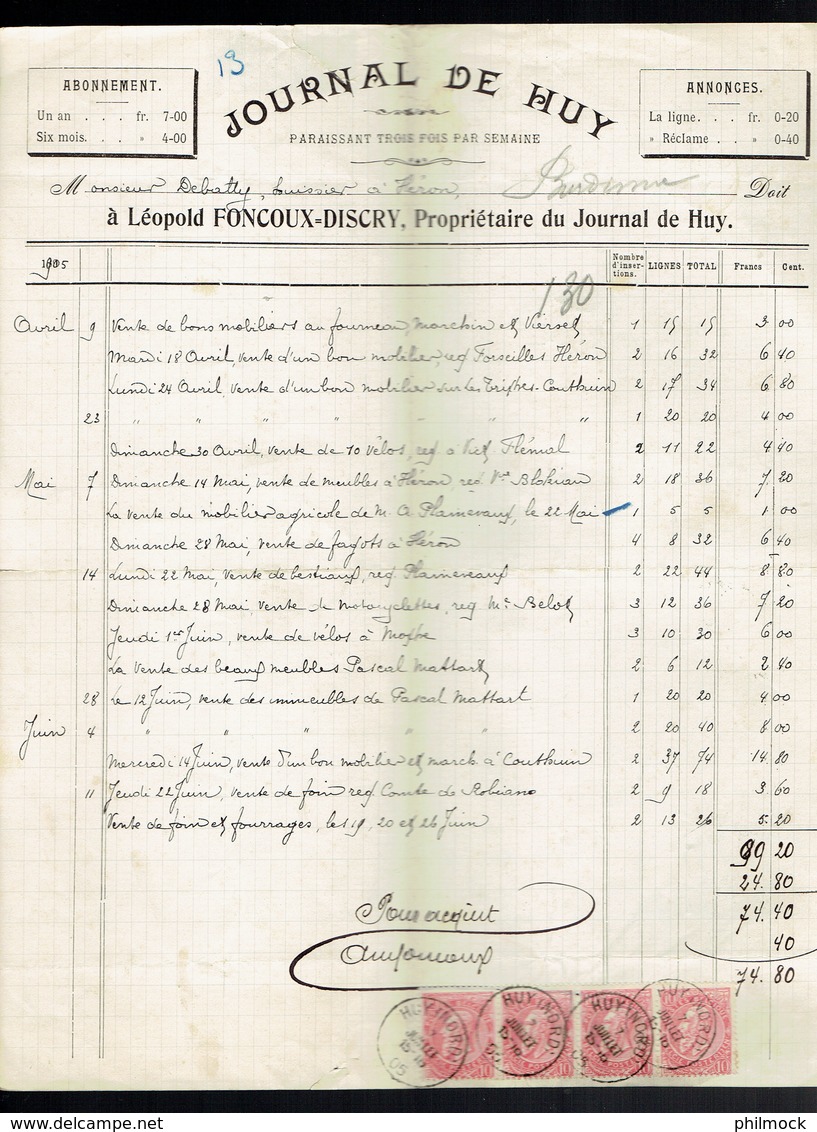 13
JOURNAL DE HUY
PARAISSANT TROIS FOIS PAR SEMAINE
ABONNEMENT.
Un an . . . fr. 7-00
Six mois. . . » 4-00
ANNONCES.
La ligne. . . fr. 0-20
» Réclame . . » 0-40
Monsieur Debatty, huissier à Héron, Burdinne Doit
à Léopold FONCOUX=DISCRY, Propriétaire du Journal de Huy.
1905 Nombre d'insertions. LIGNES TOTAL Francs Cent.
130
Avril 9 Vente de bons mobiliers au fourneau, Marchin et Vierset 1 15 15 3 00
Mardi 18 Avril, vente d'un bon mobilier, req Forseilles Héron 2 16 32 6 40
Lundi 24 Avril, vente d'un bon mobilier sur les Trixhes-Couthuin 2 17 34 6 80
23 " " " " " " " 1 20 20 4 00
Dimanche 30 Avril, vente de 10 vélos, req. à Flémal 2 11 22 4 40
Mai 7 Dimanche 14 Mai, vente de meubles à Héron, req Vve 2 18 36 7 20
La vente du mobilier agricole de M. A. Plainevaux, le 22 Mai 1 5 5 1 00
Dimanche 28 Mai, vente de fagots à Héron 4 8 32 6 40
14 Lundi 22 Mai, vente de bestiaux, req. Plainevaux 2 22 44 8 80
Dimanche 28 Mai vente de motocyclettes, req. Belot 3 12 36 7 20
Jeudi 1er Juin, vente de vélos à 3 10 30 6 00
La vente des beaux meubles Pascal Mattart 2 6 12 2 40
28 Le 12 Juin, vente des immeubles de Pascal Mattart 1 20 20 4 00
Juin 4 " " " " " 2 20 40 8 00
Mercredi 14 Juin, vente d'un bon mobilier et march. à Couthuin 2 37 74 14. 80
11 Jeudi 22 Juin, vente de foin req. Comte de Robiano 2 9 18 3. 60
Vente de foin et fourrages, les 19, 20 et 26 Juin 2 13 26 5. 20
99 20
24. 80
Pour acquit 74. 40
40
74. 80
HUY (NORD) 7 JUILLET 15-16 05
HUY (NORD) 7 JUILLET 15-16 05
HUY (NORD) 7 JUILLET 15-16 05
HUY (NORD) 7 JUILLET 15-16
10 10 10 10
philmock
philmock